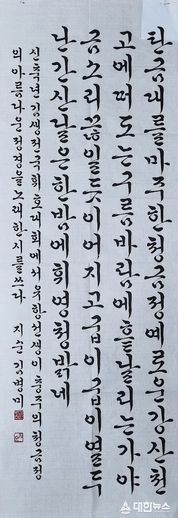 탄금대를마주한청금정예로운강산천
고에떠도는구름바람에흩날리는가야
금소리끊일듯이어지고굽이굽이열두
난간신날은한밤에휘영청밝네
신축년김생전국휘호대회에서 유한선생이 충주의청금정
의아름다운정경을노래한시를쓰다 지순김병미
대한뉴스